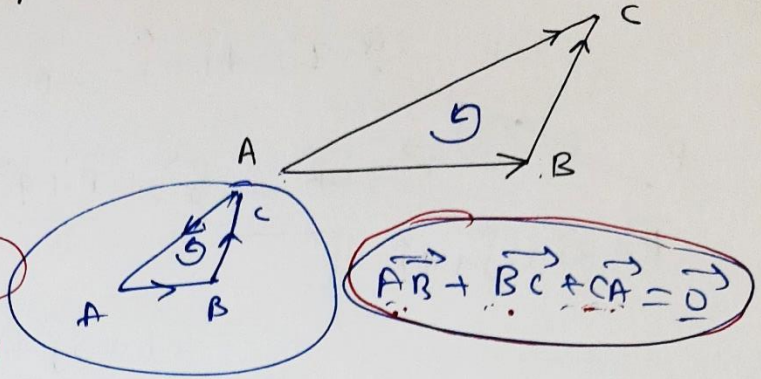 C
A
B
C
A
B
$\overrightarrow{AB} + \overrightarrow{BC} + \overrightarrow{CA} = \overrightarrow{0}$